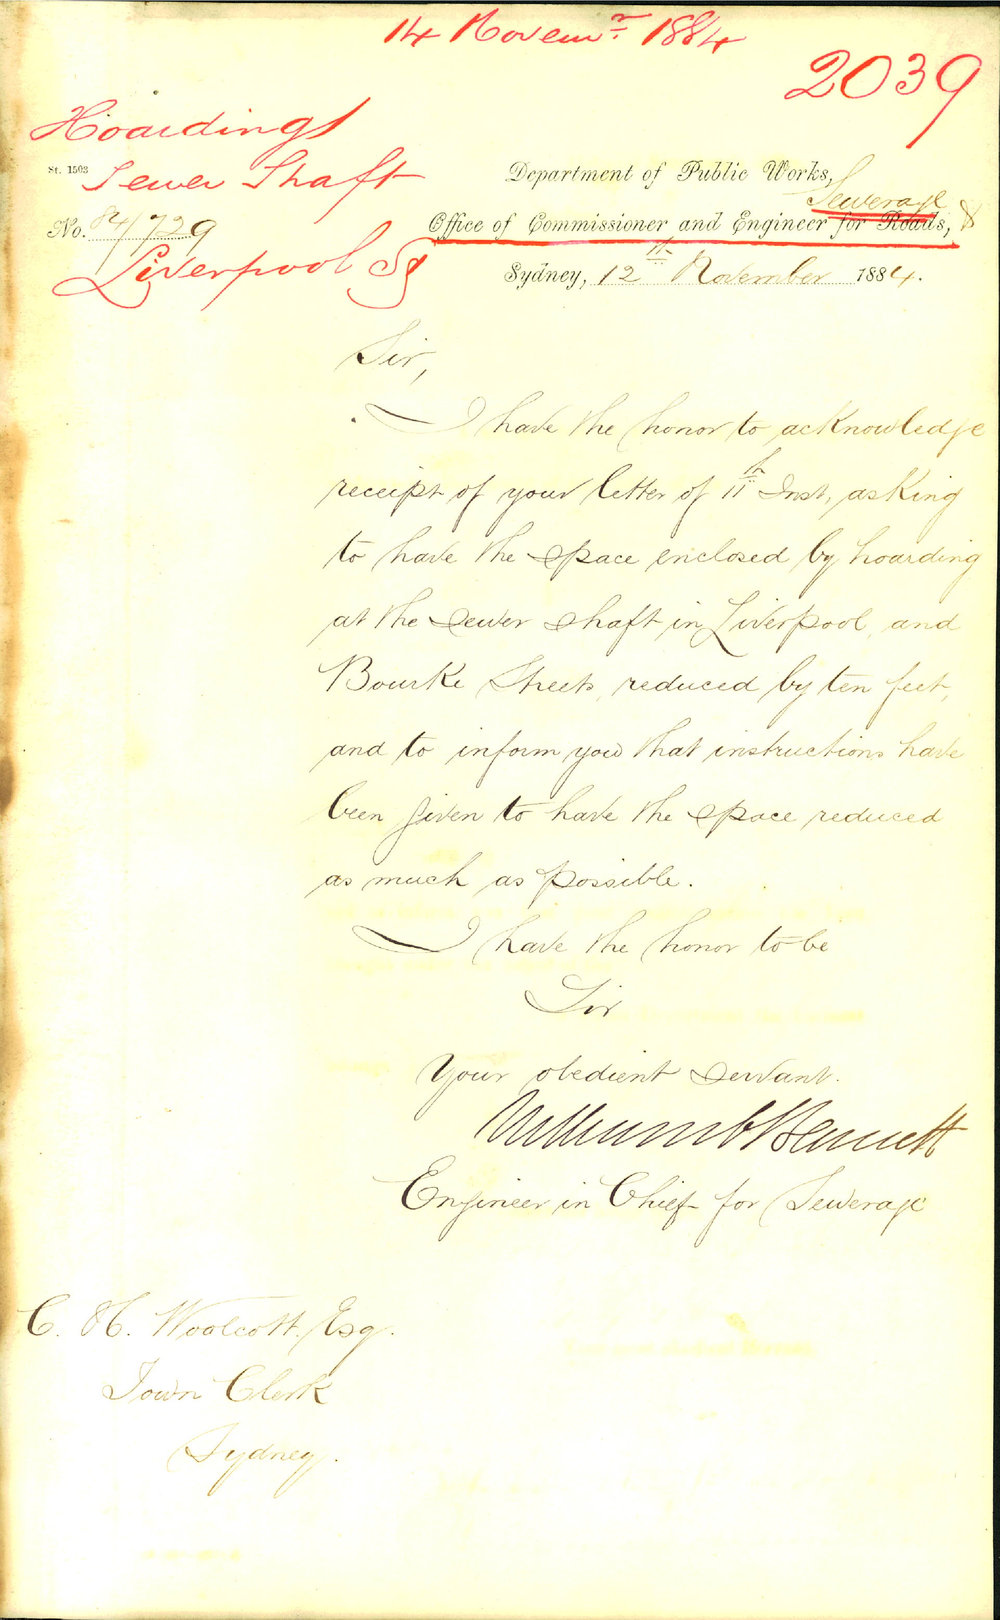 14 Novemr 1884
2039
Hoardings
St. 1503
Sewer Shaft
No. 84/729
Liverpool St
Department of Public Works,
Sewerage
Office of Commissioner and Engineer for Roads, &
Sydney, 12th November 1884.
Sir,
I have the honor to acknowledge
receipt of your letter of 11th Inst, asking
to have the space enclosed by hoarding
at the sewer shaft in Liverpool and
Bourke Streets, reduced by ten feet,
and to inform you that instructions have
been given to have the space reduced
as much as possible.
I have the honor to be
Sir
Your obedient servant.
William C Bennett
Engineer in Chief for Sewerage
C. H. Woolcott, Esq.
Town Clerk
Sydney.